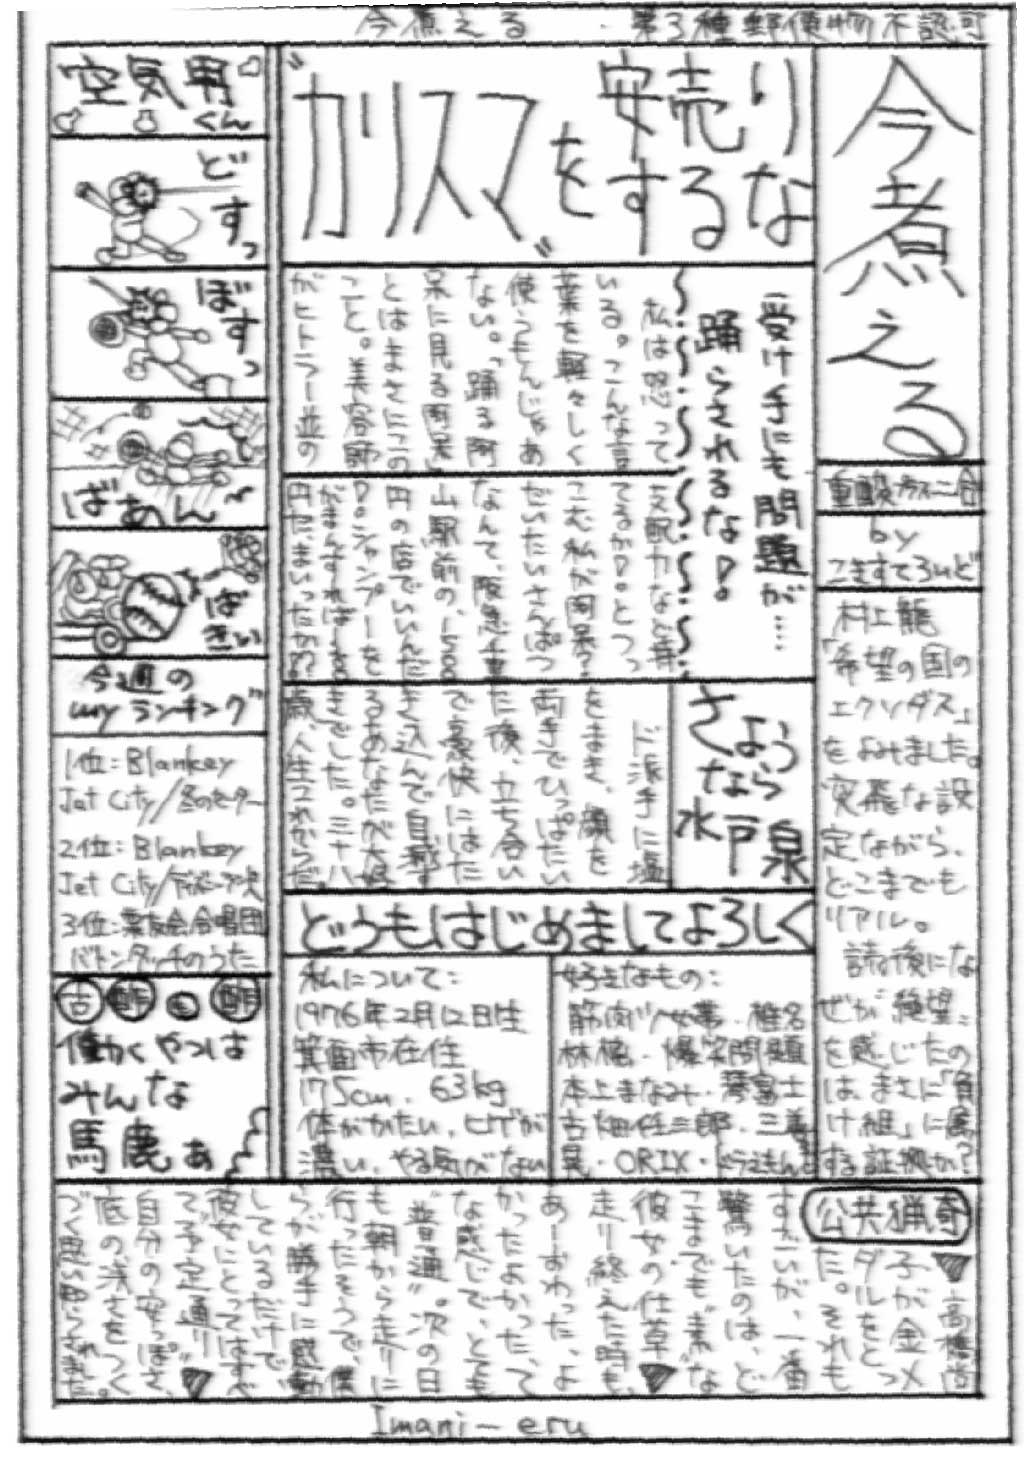 今煮える
第3種郵便物不認可
今煮える
重酸ガス二合
by
こきすてろいど
村上龍
「希望の国の
エクソダス」
をよみました。
突飛な設
定ながら、
どこまでも
リアル。
読後にな
ぜか絶望
を感じたの
は、まさに「負
け組」に属
する証拠か？
安売り
するな
〝カリスマ〟を
受け手にも問題が…
踊らされるな！
私は怒って
いる。こんな言
葉を軽々しく
使うもんじゃあ
ない。「踊る阿
呆に見る阿呆」
とはまさにこの
こと。美容師
がヒトラー並の
支配力なんぞ
てるか！とつっ
こむ私が阿呆？
だいたいさんぱつ
なんて、阪急千里
山駅前の、1500
円の店でいいんだ
！シャンプーを
がまんすれば1300
円だ。まいったか!?
さよう
なら
水戸泉
ド派手に塩
をまき、顔を
両手でひっぱたい
た後、立ち合い
で豪快にはた
き込んで自滅す
るあなたが大好
きでした。三十八
歳、人生これからだ。
どうもはじめましてよろしく
私について：
1976年2月12日生
箕面市在住
175cm、63kg
体がかたい、ヒゲが
濃い、やる気がない
好きなもの：
筋肉少女帯・椎名
林檎・爆笑問題
本上まなみ・琴富士
古畑任三郎・三善
晃・ORIX・ドラえもん
空気男
くん
どすっ
ぼすっ
ばあーん
ばきぃ
今週の
myランキング
1位：Blankey
Jet City/冬のセーター
2位：Blankey
Jet City/ディズニーランドへ
3位：栗友会合唱団
バトンタッチのうた
働くやつは
みんな
馬鹿ぁ
公共猟奇
▼高橋尚
子が金メ
ダルをとっ
た。それも
すごいが、一番
驚いたのは、ど
こまでも〝素〟な
彼女の仕草▼
走り終えた時も、
あーおわった、よ
かったよかった、て
な感じで、とても
〝普通〟。次の日
も朝から走りに
行ったそうで、僕
らが勝手に感動
しているだけで、
彼女にとってはすべ
て〝予定通り〟▼
自分の安っぽさ、
底の浅さをつく
づく思い知らされた。
Imani-eru